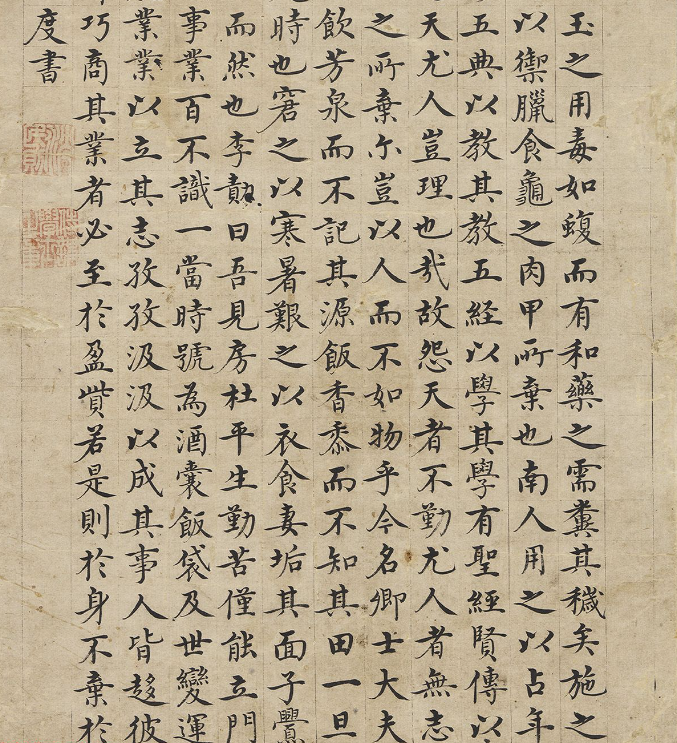 玉之用毒如蝮而有和藥之需糞其穢矣施之
以禦臘食龜之肉甲所棄也南人用之以占年
五典以教其教五経以學其學有聖經賢傳以
天尤人豈理也㢤故怨天者不勤尤人者無志
之所棄尒豈以人而不如物乎今名卿士大夫
飲芳泉而不記其源飯香黍而不知其田一旦
時也窘之以寒暑艱之以衣食妻垢其面子覺
而然也李勣曰吾見房杜平生勤苦僅能立門
事業百不識一當時號為酒囊飯袋及世變運
業業以立其志孜孜汲汲以成其事人皆趍彼
巧商其業者必至於盈貲若是則於身不棄於
度書